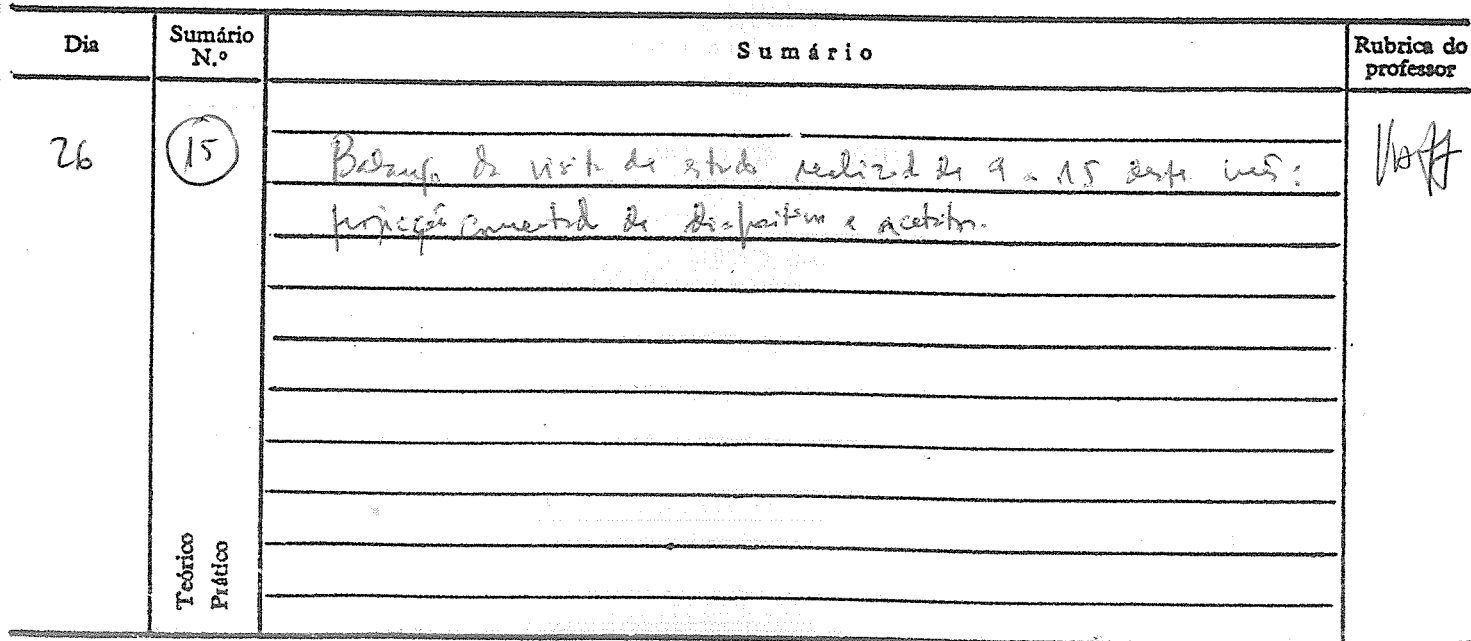 Dia
Sumário N.º
Sumário
Rubrica do professor
26
15
Balanço da visita de estudo realizada de 9 a 15 deste mês:
projecção comentada de diapositivos e acetatos.
Teórico
Prático